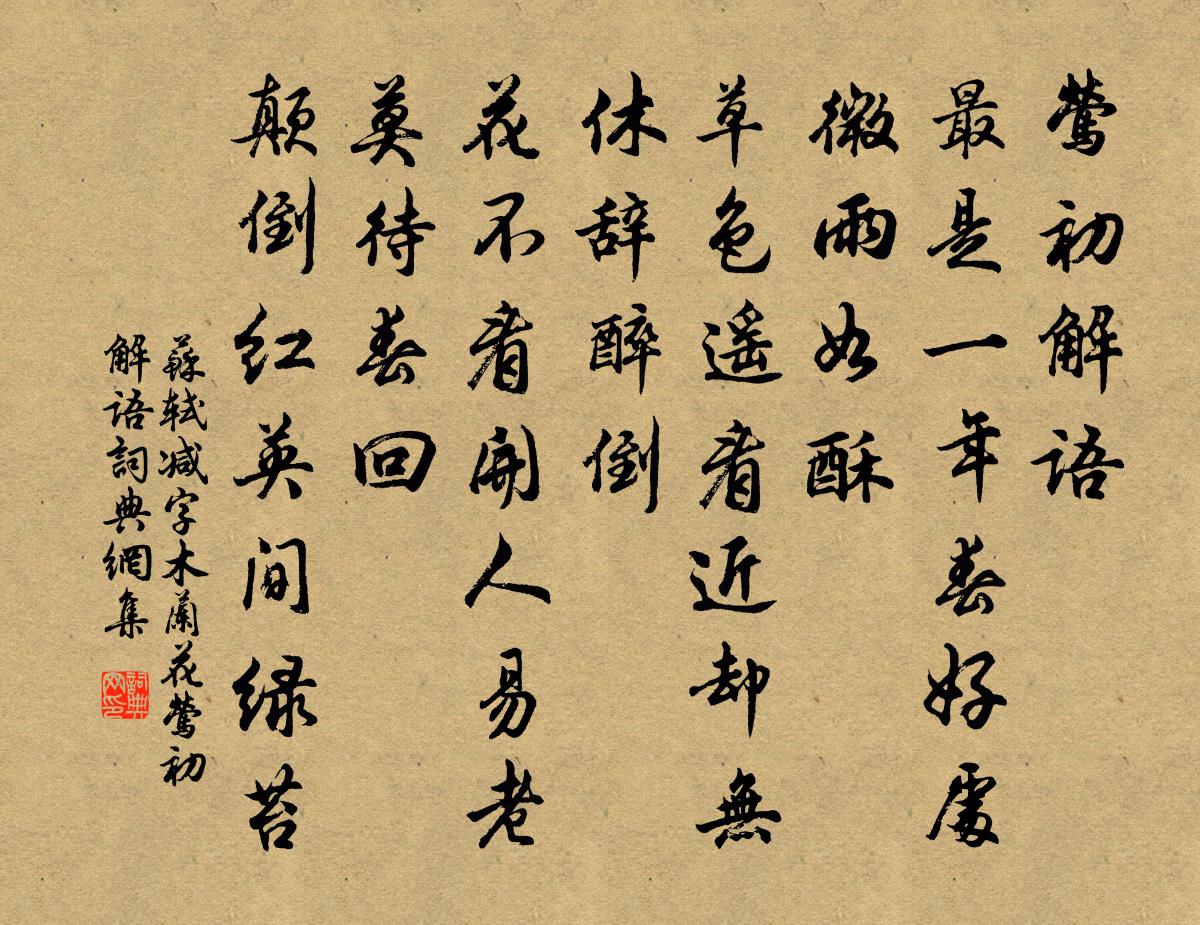 鶯初解語
最是一年春好處
微雨如酥
草色遙看近却無
休辞醉倒
花不看開人易老
莫待春回
顛倒红英間绿苔
蘇軾减字木蘭花鶯初
解語詞典網集
詞典
网印